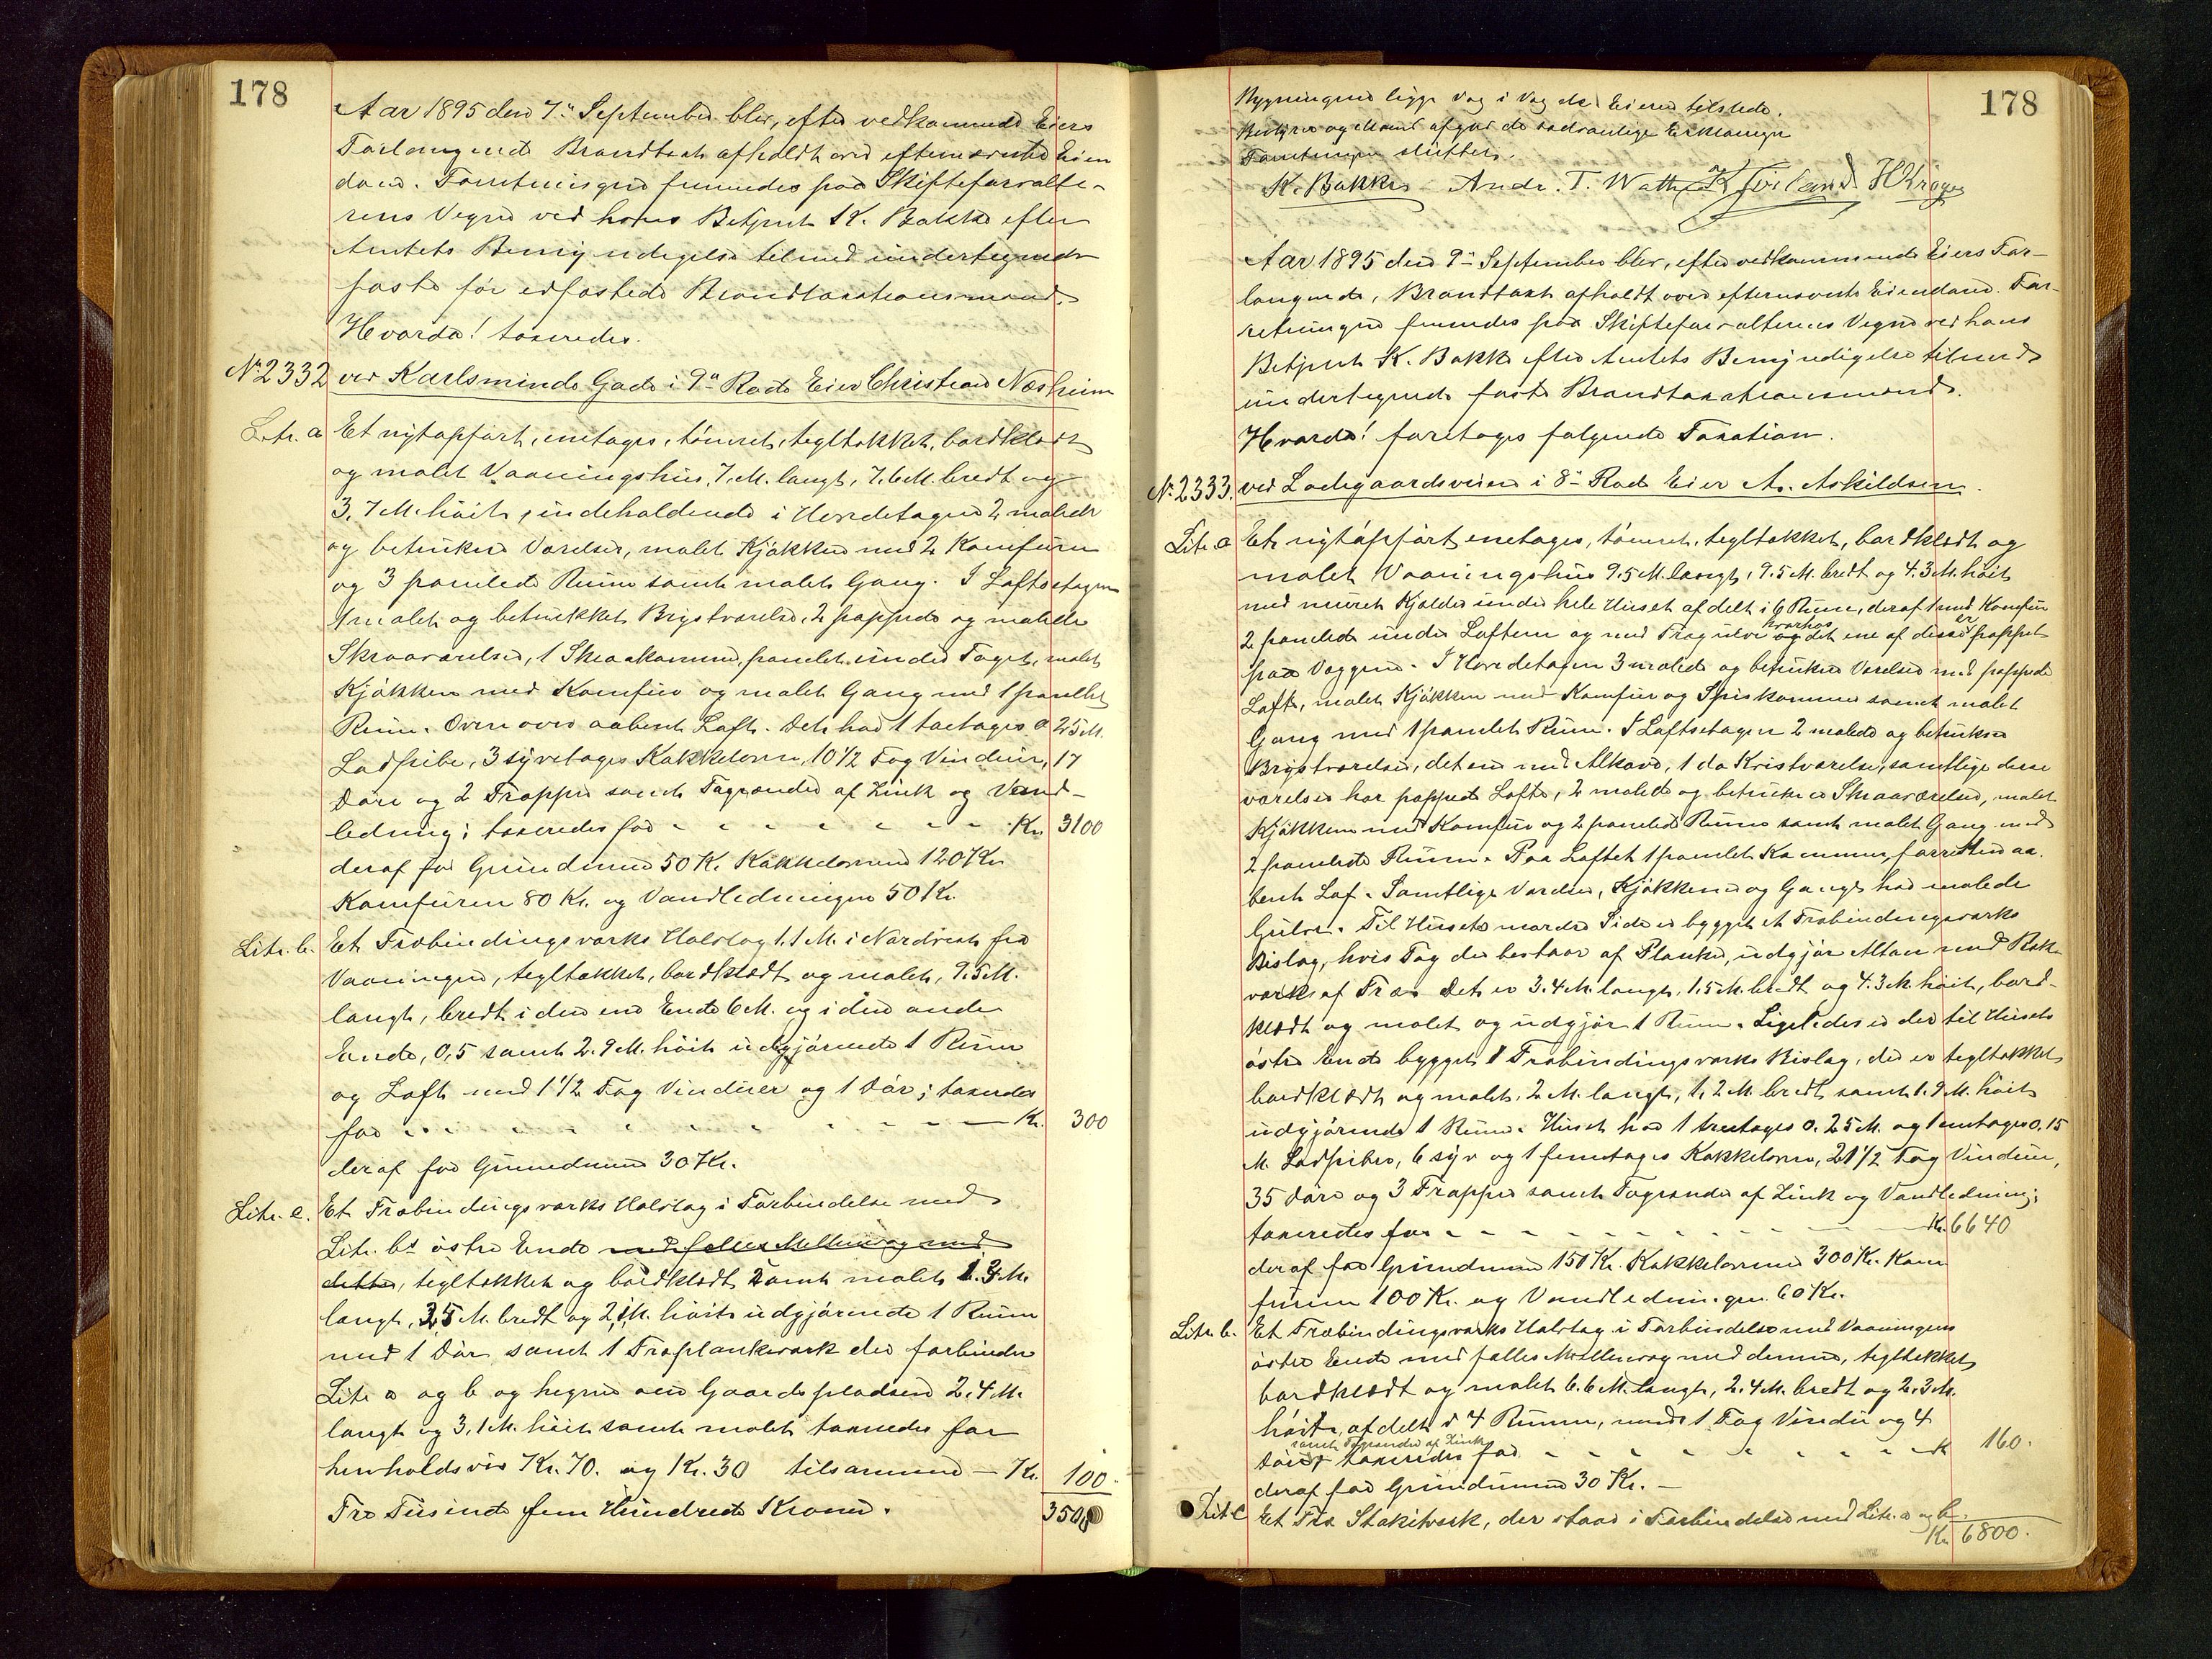 178
Aar 1895 den 7de September blev, efter vedkommende Eiers
Forlangende Brandtaxt afholdt over efternævnte Eien
dom. Forretningen fremmedes paa Skifteforvalte-
rens Vegne ved hans Betjent K. Bakke efter
Amtets Bemyndigelse tilmed undertegnede
faste før edfæstede Brandtaxationsmænd.
Hvorda! taxeredes.
No 2332 ved Karlsminde Gade i 9de Rode Eier Christian Næsheim
Litr. a Et nytopført, enetages, tømret, tegltækket, bordklædt
og malet Vaaningshus, 7. M. langt, 7.6 M. bredt og
3.7 M. høit, indeholdende i Hovedetagen 2 malede
og betrukne Værelser, malet Kjøkken med 2 Komfurer
og 3 panelede Rum samt malet Gang. I Loftsetagen
1 malet og betrukket Brystværelse, 2 pappede og malede
Skraaværelser, 1 Skraakammer, panelet under Taget, malet
Kjøkken med Komfur og malet Gang med 1 panelet
Rum. Ovenover aabent Loft. Det har 1 toetages 0.25 M.
Ladpibe, 3 syvetages Kakkelovne, 10 1/2 Fag Vinduer, 17
Døre og 2 Trapper samt Tagrender af Zink og Vand-
ledning; taxeredes for - - - - - - - Kr. 3100
deraf for Grundmuren 50 Kr. Kakkelovnene 120 Kr.
Komfuren 80 Kr. og Vandledningen 50 Kr.
Litr. b. Et Træbindingsværks Halvtag 1.1 M. i Nordvest fra
Vaaningen, tegltækket, bordklædt og malet, 9.5 M.
langt, bredt i den ene Ende 6 M. og i den anden
Ende, 0,5 samt 2.9 M. høit udgjørende 1 Rum
og Loft med 1 1/2 Fag Vinduer og 1 Dør; taxeredes
for - - - - - - - - - Kr. 300
deraf for Grundmuren 30 Kr.
Litr. c. Et Træbindingsværks Halvtag i Forbindelse med
Litr. bs østre Ende med fælles Mellemvæg med
dette, tegltækket og bordklædt samt malet 1.3 M.
langt, 3,5 M. bredt og 2,1 M. høit udgjørende 1 Rum
med 1 Dør, samt 1 Træplankeværk der forbinder
Litr. a og b og hegner om Gaardspladsen 2,4 M.
langt og 3,1 M. høit samt malet taxeredes for
henholdsvis Kr. 70. og Kr. 30 tilsammen - Kr. 100.
Tre Tusinde fem Hundrede Kroner. 3500
178
Bygningerne ligge Væg i Væg der Eieren tilstede.
Bestyrer og Mænd afgav de sædvanlige Erklæringer
Forretningen sluttet.
K. Bakke Andr. T. Wathne
Aar 1895 den 9de September blev, efter vedkommende Eiers For-
langende, Brandtaxt afholdt over efternævnte Eiendom. For-
retningen fremmedes paa Skifteforvalterens Vegne ved hans
Betjent K. Bakke efter Amtets Bemyndigelse tilmed
undertegnede faste Brandtaxationsmænd.
Hvorda! foretoges følgende Taxation.
No 2333. ved Ladegaardsveien i 8de Rode Eier A. Askildsen.
Litr. a Et nytopført enetages, tømret, tegltækket, bordklædt og
malet Vaaningshus 9.5 M. langt, 9.5 M. bredt og 4.3 M. høit
med muret Kjælder under hele Huset afdelt i 6 Rum, deraf 1 med Komfur
2 panelede under Loftene og med Trægulve hvorhos det ene af disse er pappet
paa Væggene. I Hovedetagen 3 malede og betrukne Værelser med pappede
Loft, malet Kjøkken med Komfur og Spiskammer samt malet
Gang med 1 panelet Rum. I Loftsetagen 2 malede og betrukne
Brystværelser, det ene med Alkove, 1 do Kvistværelse, samtlige disse
værelser har pappede Lofte, 2 malede og betrukne Skraaværelser, malet
Kjøkken med Komfur og 2 panelede Rum samt malet Gang med
2 panelede Rum. Paa Loftet 1 panelet Kammer, forresten aa-
bent Loft. Samtlige Værelser, Kjøkkener og Gange har malede
Gulve. Til Husets nordre Side er bygget et Træbindingsværks
Bislag, hvis Tag der bestaar af Planker, udgjør Altan med Rek-
værk af Træ. Det er 3.4 M. langt, 1.5 M. bredt og 4.3 M. høit, bord-
klædt og malet og udgjør 1 Rum. Ligeledes er der til Husets
østre Ende bygget 1 Træbindingsværks Bislag, der er tegltækket
bordklædt og malet, 2 M. langt, 1,2 M. bredt samt 1.9 M. høit
udgjørende 1 Rum. Huset har 1 treetages 0.25 M. og 1 enetages 0.15
M. Ladpiber, 6 syv og 1 femetages Kakkelovne, 21 1/2 Fag Vinduer,
35 Døre og 3 Trapper samt Tagrender af Zink og Vandledning;
taxeredes for - - - - - - - Kr. 6640
deraf for Grundmuren 150 Kr. Kakkelovnene 300 Kr. Kom
furene 100 Kr. og Vandledningen 60 Kr.
Litr. b. Et Træbindingsværks Halvtag i Forbindelse med Vaaningens
østre Ende med fælles Mellemvæg med denne, tegltækket
bordklædt og malet 6.6 M. langt, 2.4 M. bredt og 2.3 M.
høit, afdelt i 4 Rum, med 1 Fag Vindu og 4
samt Tagrender af Zink
Døre taxeredes for - - - - - - - Kr. 160.
deraf for Grundmuren 30 Kr. -
Litr. c Et Træ Stakitværk, der staar i Forbindelse med Litr. a og b.
Kr. 6800.